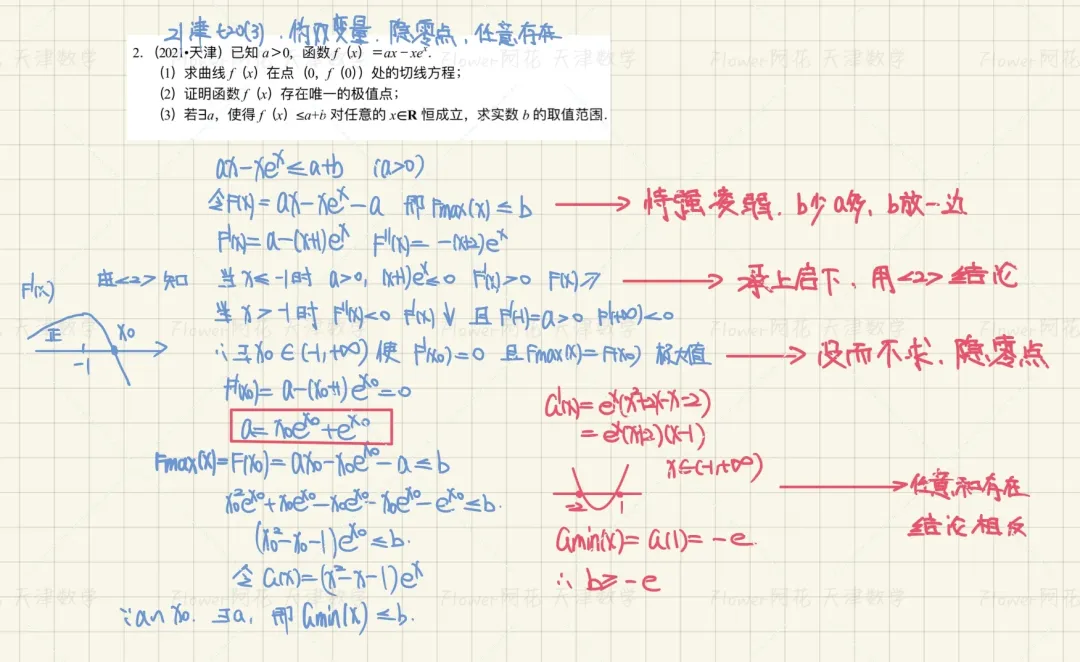 21津t20(3).伪双变量.隐零点,任意存在
2.(2021•天津)已知a>0,函数f(x)=ax-xeˣ.
(1)求曲线f(x)在点(0,f(0))处的切线方程;
(2)证明函数f(x)存在唯一的极值点;
(3)若∃a,使得f(x)≤a+b对任意的x∈R恒成立,求实数b的取值范围.
ax-xeˣ≤a+b (a>0)
令F(x)=ax-xeˣ-a 即Fmax(x)≤b → 恃强凌弱.b少a多、b放一边
F'(x)=a-(x+1)eˣ F''(x)=-(x+2)eˣ
F'(x) 由<2>知 当x≤-1时 a>0,(x+1)eˣ≤0 F'(x)>0 F(x)↗ → 承上启下、用<2>结论
当x>-1时 F''(x)<0 F'(x)↓且F'(-1)=a>0 F'(+∞)<0
正 x₀ -1
∴∃x₀∈(-1,+∞)使F'(x₀)=0 且Fmax(x)=F(x₀) 极大值 → 设而不求、隐零点
F'(x₀)=a-(x₀+1)e^x₀=0
a=x₀e^x₀+e^x₀
Fmax(x)=F(x₀)=ax₀-x₀e^x₀-a≤b
x₀²e^x₀+x₀e^x₀-x₀e^x₀-x₀e^x₀-e^x₀≤b.
(x₀²-x₀-1)e^x₀≤b.
令G(x)=(x²-x-1)eˣ
∵a∽x₀.∃a,即Gmin(x)≤b.
G'(x)=eˣ(x²+2x-x-2)
=eˣ(x+2)(x-1)
x∈(-1,+∞)
-2 1
→ 任意和存在
结论相反
Gmin(x)=G(1)=-e.
∴b≥-e
Flower阿花 天津数学